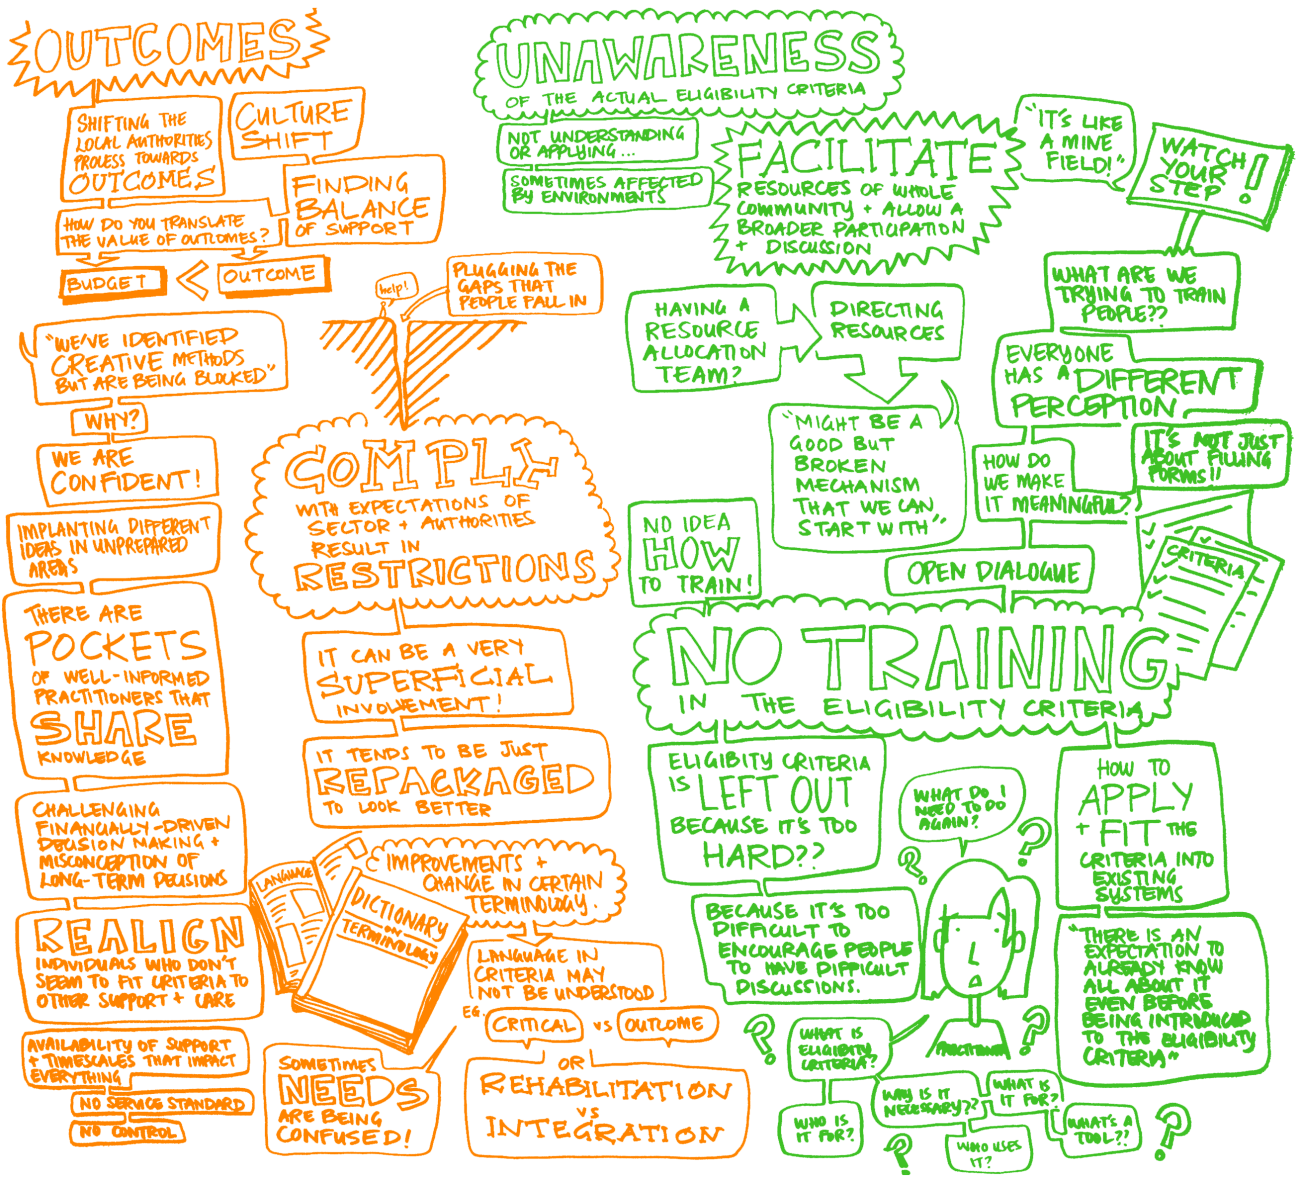 OUTCOMES
SHIFTING THE
LOCAL AUTHORITIES
PROCESS TOWARDS
OUTCOMES
CULTURE
SHIFT
FINDING
BALANCE
OF SUPPORT
HOW DO YOU TRANSLATE
THE VALUE OF OUTCOMES?
BUDGET < OUTCOME
help!
PLUGGING THE
GAPS THAT
PEOPLE FALL IN
"WE'VE IDENTIFIED
CREATIVE METHODS
BUT ARE BEING BLOCKED"
WHY?
WE ARE
CONFIDENT!
IMPLANTING DIFFERENT
IDEAS IN UNPREPARED
AREAS
THERE ARE
POCKETS
OF WELL-INFORMED
PRACTITIONERS THAT
SHARE
KNOWLEDGE
CHALLENGING
FINANCIALLY-DRIVEN
DECISION MAKING +
MISCONCEPTION OF
LONG-TERM DECISIONS
REALIGN
INDIVIDUALS WHO DON'T
SEEM TO FIT CRITERIA TO
OTHER SUPPORT + CARE
AVAILABILITY OF SUPPORT
+ TIMESCALES THAT IMPACT
EVERYTHING
NO SERVICE STANDARD
NO CONTROL
COMPLY
WITH EXPECTATIONS OF
SECTOR + AUTHORITIES
RESULT IN
RESTRICTIONS
IT CAN BE A VERY
SUPERFICIAL
INVOLVEMENT!
IT TENDS TO BE JUST
REPACKAGED
TO LOOK BETTER
LANGUAGE
DICTIONARY
ON
TERMINOLOGY
IMPROVEMENTS +
CHANGE IN CERTAIN
TERMINOLOGY.
LANGUAGE IN
CRITERIA MAY
NOT BE UNDERSTOOD
EG.
CRITICAL VS OUTCOME
OR
REHABILITATION
VS
INTEGRATION
SOMETIMES
NEEDS
ARE BEING
CONFUSED!
UNAWARENESS
OF THE ACTUAL ELIGIBILITY CRITERIA
NOT UNDERSTANDING
OR APPLYING...
SOMETIMES AFFECTED
BY ENVIRONMENTS
FACILITATE
RESOURCES OF WHOLE
COMMUNITY + ALLOW A
BROADER PARTICIPATION
+ DISCUSSION
"IT'S LIKE
A MINE
FIELD!"
WATCH
YOUR
STEP!
HAVING A
RESOURCE
ALLOCATION
TEAM?
DIRECTING
RESOURCES
"MIGHT BE A
GOOD BUT
BROKEN
MECHANISM
THAT WE CAN
START WITH"
WHAT ARE WE
TRYING TO TRAIN
PEOPLE??
EVERYONE
HAS A DIFFERENT
PERCEPTION
IT'S NOT JUST
ABOUT FILLING
FORMS!!
HOW DO
WE MAKE
IT MEANINGFUL?
OPEN DIALOGUE
CRITERIA
NO IDEA
HOW
TO TRAIN!
NO TRAINING
IN THE ELIGIBILITY CRITERIA
ELIGIBITY CRITERIA
IS LEFT OUT
BECAUSE IT'S TOO
HARD??
BECAUSE IT'S TOO
DIFFICULT TO
ENCOURAGE PEOPLE
TO HAVE DIFFICULT
DISCUSSIONS.
WHAT DO I
NEED TO DO
AGAIN?
?
?
HOW TO
APPLY
+ FIT THE
CRITERIA INTO
EXISTING
SYSTEMS
"THERE IS AN
EXPECTATION TO
ALREADY KNOW
ALL ABOUT IT
EVEN BEFORE
BEING INTRODUCED
TO THE ELIGIBILITY
CRITERIA"
PRACTITIONER
?
?
WHAT IS
ELIGIBILITY
CRITERIA?
WHO IS
IT FOR?
WHY IS IT
NECESSARY??
WHAT IS
IT FOR?
WHO USES
IT?
WHAT'S A
TOOL??
?
?